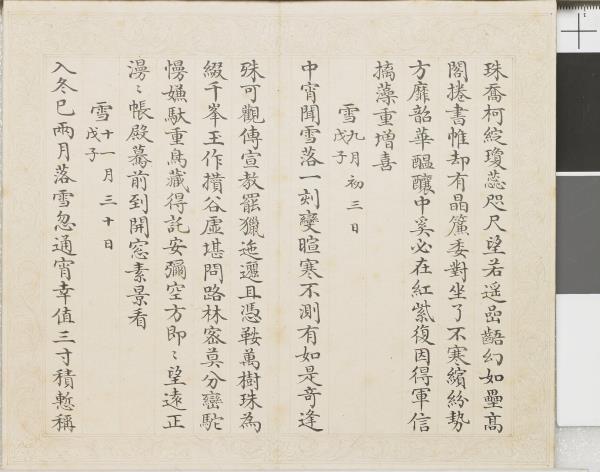 珠喬柯綻瓊蕊咫尺望若遥嵒齬幻如壘髙
閣捲書惟却有晶簾委對坐了不寒繽紛勢
方靡韶華醖釀中奚必在紅紫復因得軍信
摛藻重增喜
雪戊子九月初三日
中宵聞雪落一刻變暄寒不測有如是奇逢
殊可觀傳宣教罷獵迤邐且憑鞍萬樹珠為
綴千峯玉作攢谷虚堪問路林密莫分巒駝
慢嫌馱重鳥藏得託安彌空方即〻望遠正
漫〻帳殿驀前到開窓素景看
雪戊子十一月三十日
入冬已兩月落雪忽通宵幸值三寸積慙稱